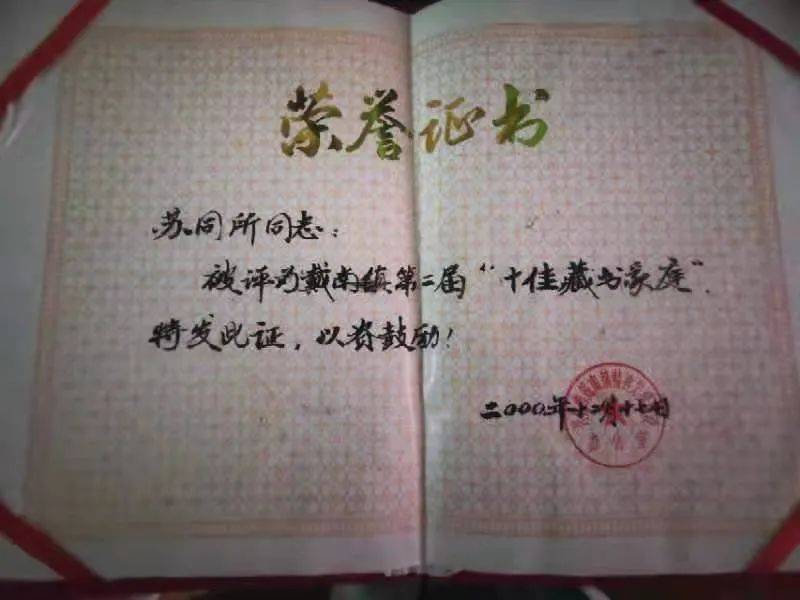 荣誉证书
苏同所同志：
被评为戴南镇第二届“十佳藏书家庭”.
特发此证，以资鼓励！
二000年十二月十七日